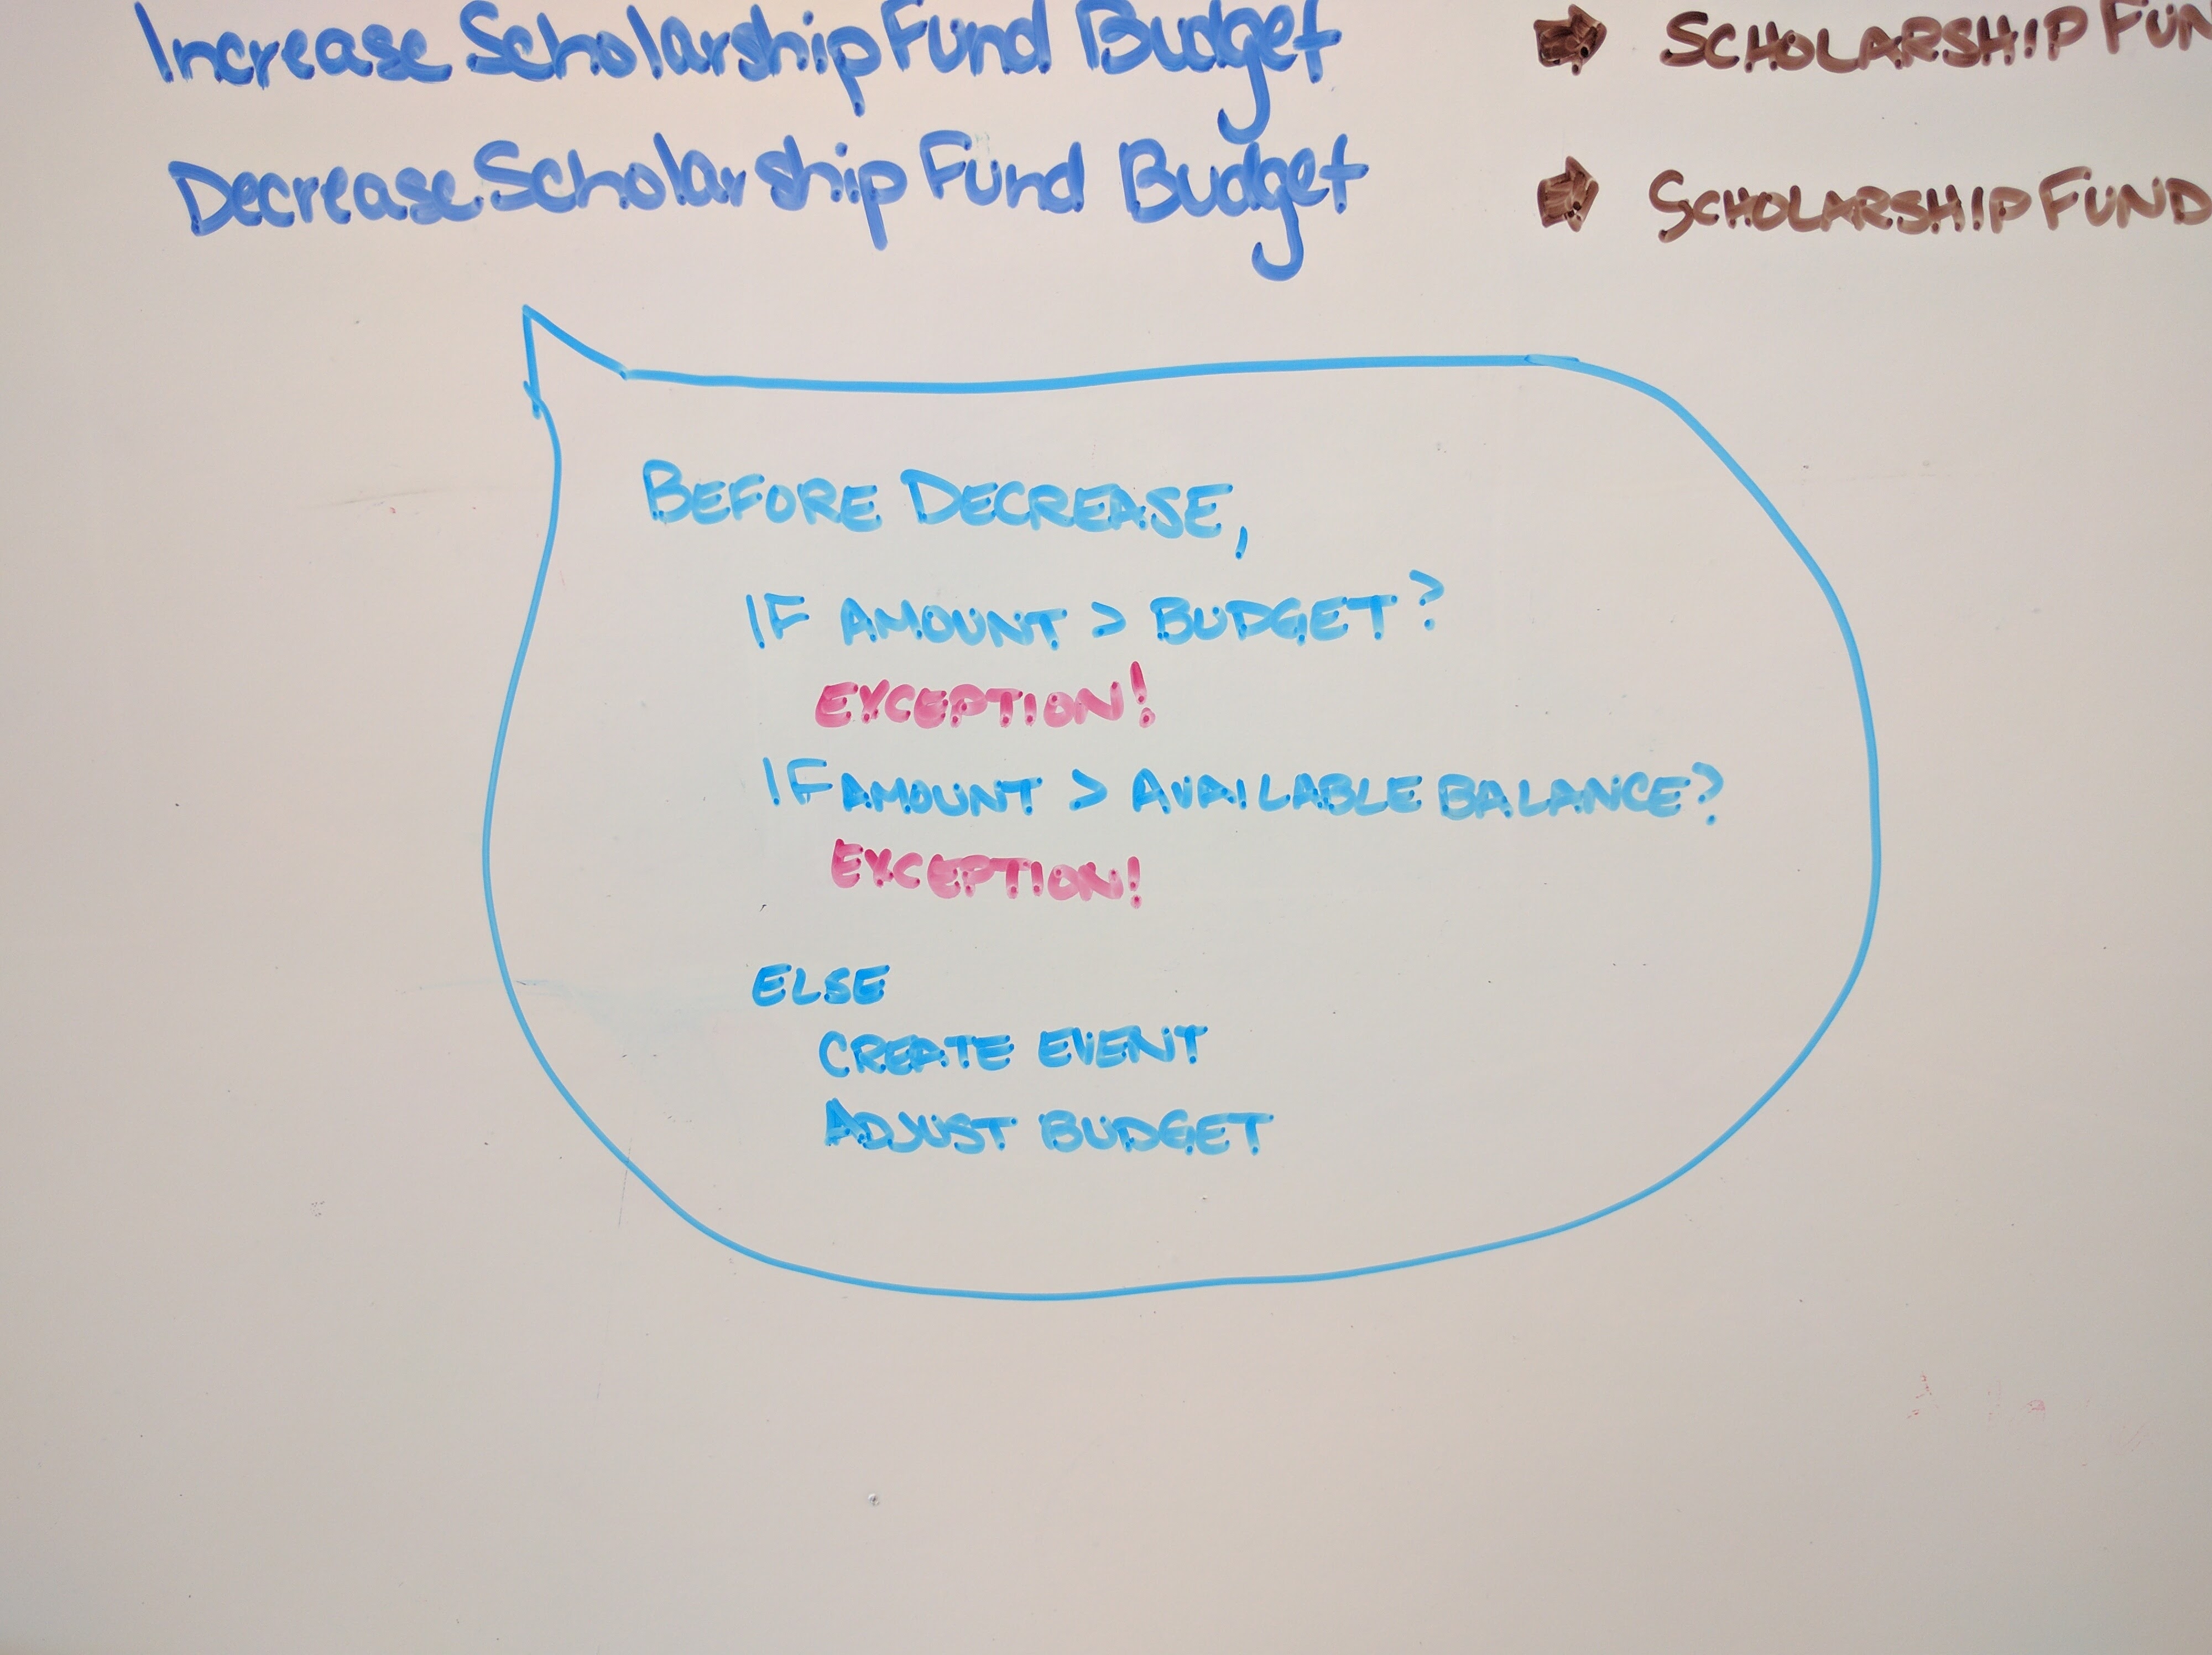 Increase Scholarship Fund Budget
SCHOLARSHIP
Decrease Scholarship Fund Budget
SCHOLARSHIP FUND
BEFORE DECREASE,
IF AMOUNT > BUDGET?
EXCEPTION!
IF AMOUNT > AVAILABLE BALANCE?
EXCEPTION!
ELSE
CREATE EVENT
ADJUST BUDGET